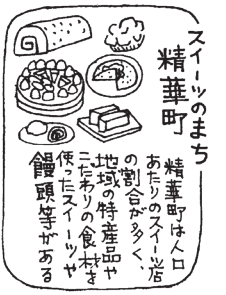 スイーツのまち
精華町
精華町は人口
あたりのスイーツ店
の割合が多く、
地域の特産品や
こだわりの食材を
使ったスイーツや
饅頭等がある